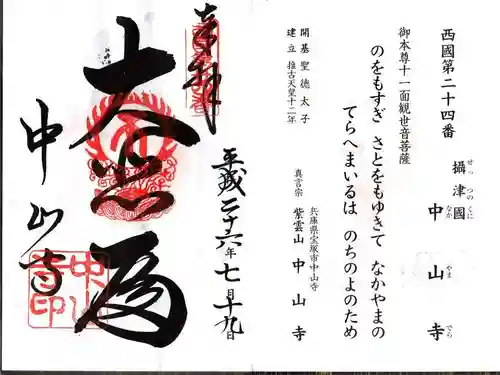 西國第二十四番
攝津國 中山寺
せっ つの くに なか やま でら
御本尊十一面観世音菩薩
のをもすぎ さとをもゆきて なかやまの
てらへまいるは のちのよのため
開基 聖徳太子
建立 推古天皇十二年
兵庫県宝塚市中山寺
真言宗 紫雲山 中山寺
奉拝
平成二十六年七月十九日
大悲殿
中山寺
中山寺印